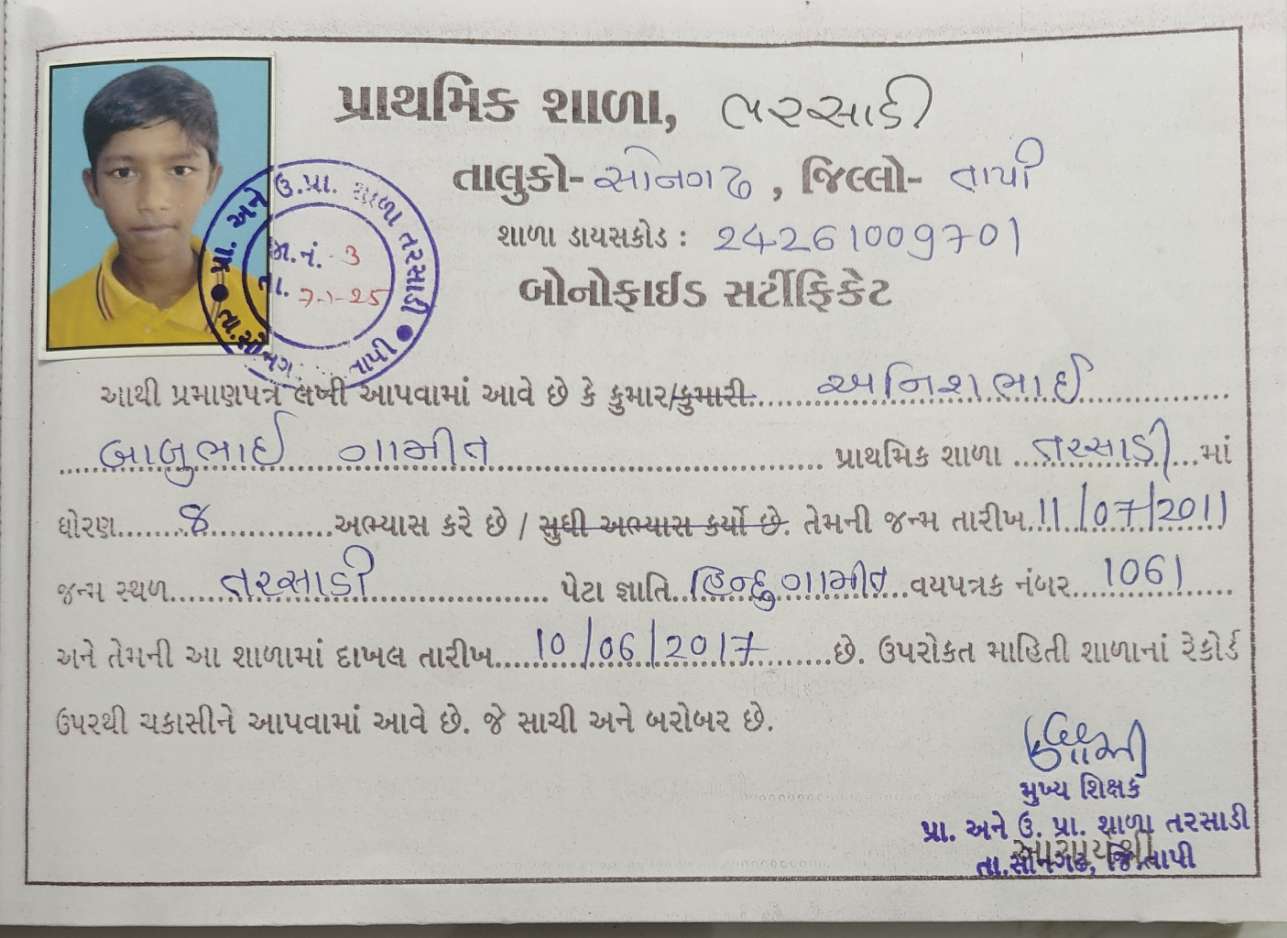 પ્રાથમિક શાળા, તરસાડી
તાલુકો- સોનગઢ , જિલ્લો- તાપી
શાળા ડાયસકોડ : 24261009701
બોનોફાઈડ સર્ટીફિકેટ
પ્રા. અને ઉ.પ્રા. શાળા તરસાડી
જા.નં. 3
તા. 7-1-25
તા.સોનગ તાપી
આથી પ્રમાણપત્ર લખી આપવામાં આવે છે કે કુમાર/કુમારી. અનિશભાઈ
બાબુભાઈ ગામીત પ્રાથમિક શાળા તરસાડી માં
ધોરણ 8 અભ્યાસ કરે છે / સુધી અભ્યાસ કર્યો છે. તેમની જન્મ તારીખ 11/07/2011
જન્મ સ્થળ તરસાડી પેટા જ્ઞાતિ હિન્દુ ગામીત વયપત્રક નંબર 1061
અને તેમની આ શાળામાં દાખલ તારીખ 10/06/2017 છે. ઉપરોકત માહિતી શાળાનાં રેકોર્ડ
ઉપરથી ચકાસીને આપવામાં આવે છે. જે સાચી અને બરોબર છે.
મુખ્ય શિક્ષક
પ્રા. અને ઉ. પ્રા. શાળા તરસાડી
આચાર્યશ્રી
તા.સોનગઢ, જિ.તાપી